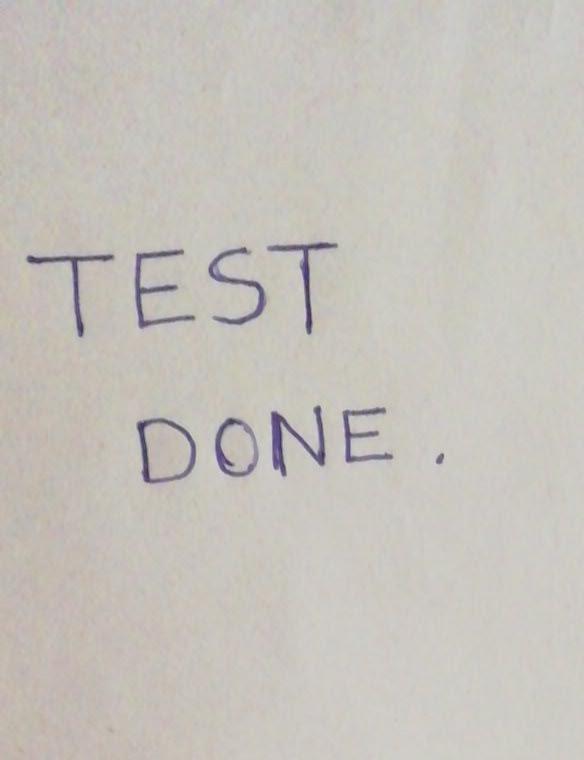 TEST
DONE.